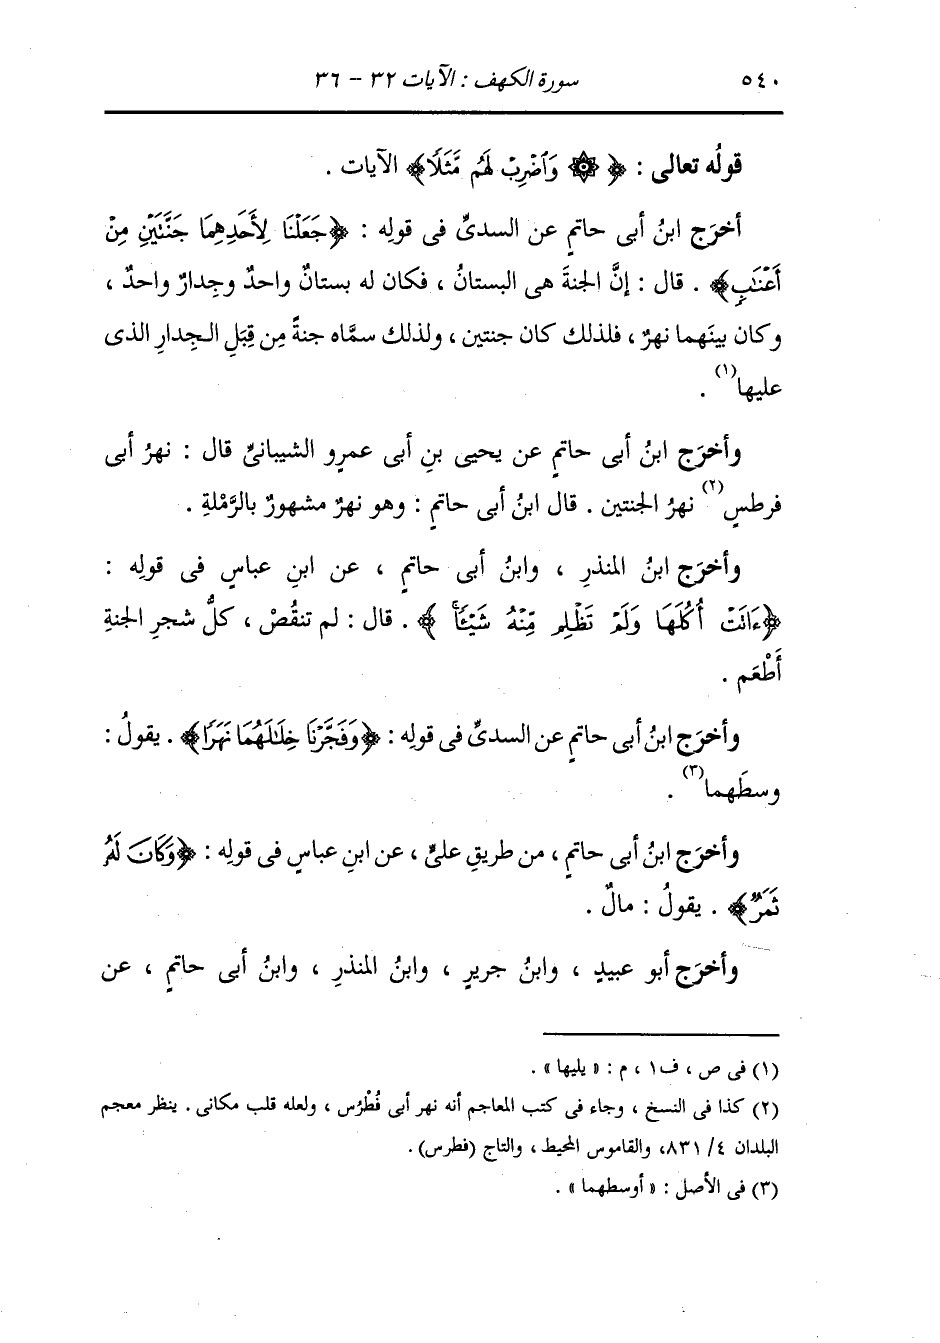 ٥٤٠ سورة الكهف : الآيات ٣٢ – ٣٦
قولُه تعالى : ﴿ ۞ وَٱضْرِبْ لَهُم مَّثَلًا﴾ الآيات .
أخرَج ابنُ أبى حاتمٍ عن السدىِّ فى قولِه : ﴿جَعَلْنَا لِأَحَدِهِمَا جَنَّتَيْنِ مِنْ
أَعْنَٰبٍ﴾ . قال : إنَّ الجنةَ هى البستانُ ، فكان له بستانٌ واحدٌ وجِدارٌ واحدٌ ،
وكان بينَهما نهرٌ ، فلذلك كان جنتين ، ولذلك سمَّاه جنةً مِن قِبَلِ الجِدارِ الذى
عليها(١) .
وأخرَج ابنُ أبى حاتمٍ عن يحيى بنِ أبى عمرٍو الشيبانىِّ قال : نهرُ أبى
فرطسٍ(٢) نهرُ الجنتين . قال ابنُ أبى حاتمٍ : وهو نهرٌ مشهورٌ بالرَّمْلةِ .
وأخرَج ابنُ المنذرِ ، وابنُ أبى حاتمٍ ، عن ابنِ عباسٍ فى قولِه :
﴿ءَاتَتْ أُكُلَهَا وَلَمْ تَظْلِم مِّنْهُ شَيْـًٔا ۚ﴾ . قال : لم تنقُصْ ، كلُّ شجرِ الجنةِ
أَطْعَم .
وأخرَج ابنُ أبى حاتمٍ عن السدىِّ فى قولِه : ﴿وَفَجَّرْنَا خِلَٰلَهُمَا نَهَرًا﴾ . يقولُ :
وسطَهما(٣) .
وأخرَج ابنُ أبى حاتمٍ ، من طريقِ علىٍّ ، عن ابنِ عباسٍ فى قولِه : ﴿وَكَانَ لَهُۥ
ثَمَرٌ﴾ . يقولُ : مالٌ .
وأخرَج أبو عبيدٍ ، وابنُ جريرٍ ، وابنُ المنذرِ ، وابنُ أبى حاتمٍ ، عن
(١) فى ص ، ف١ ، م : « يليها » .
(٢) كذا فى النسخ ، وجاء فى كتب المعاجم أنه نهر أبى فُطْرُس ، ولعله قلب مكانى . ينظر معجم
البلدان ٤/ ٨٣١، والقاموس المحيط ، والتاج (فطرس) .
(٣) فى الأصل : « أوسطهما » .